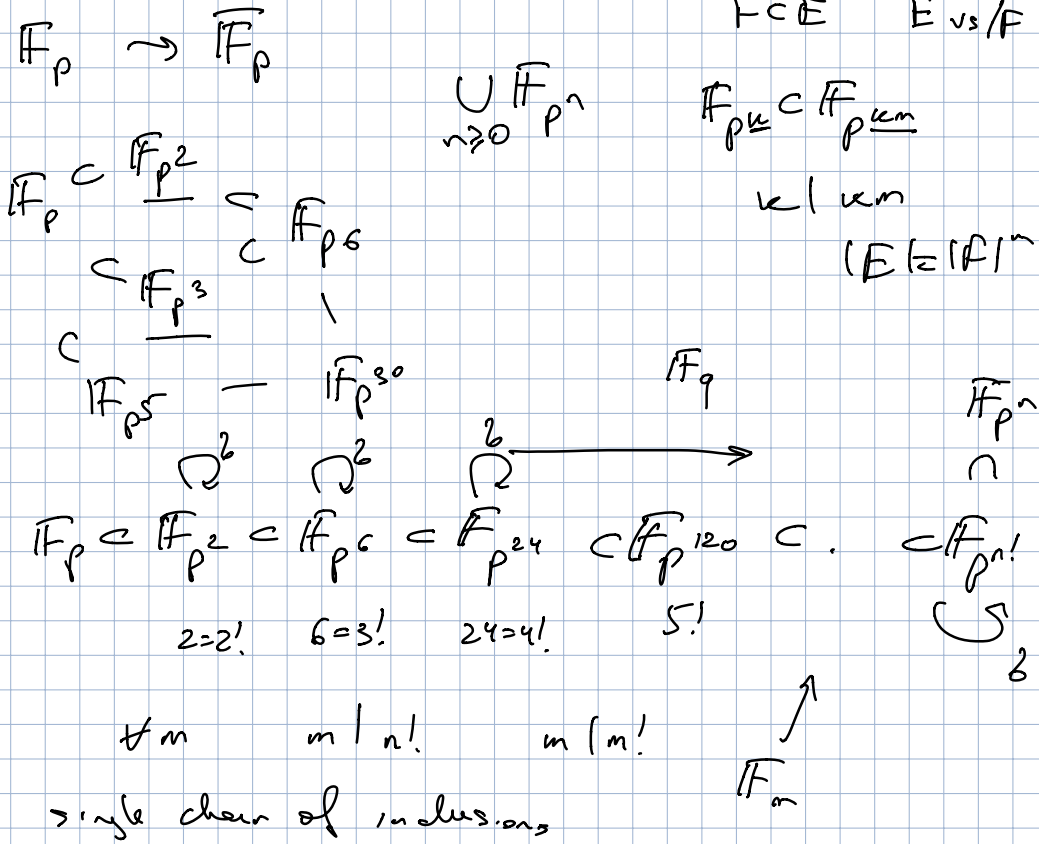 F ⊂ E   E vs/F
𝔽_p → \overline{𝔽_p}
⋃_{n≥0} 𝔽_{p^n}   𝔽_{p^k} ⊂ 𝔽_{p^{km}}
𝔽_p ⊂ 𝔽_{p^2} ⊂
k | km
⊂ 𝔽_{p^6}
|E| = |F|^n
⊂ 𝔽_{p^3}
⊂ 𝔽_{p^5} — 𝔽_{p^{30}}   𝔽_q
6   6   6   →   𝔽_{p^n}
∩
𝔽_p ⊂ 𝔽_{p^2} ⊂ 𝔽_{p^6} ⊂ 𝔽_{p^{24}} ⊂ 𝔽_{p^{120}} ⊂ . ⊂ 𝔽_{p^{n!}}
2=2!   6=3!   24=4!   5!
6
∀ m   m | n!   m | m!
𝔽_m
single chain of inclusions